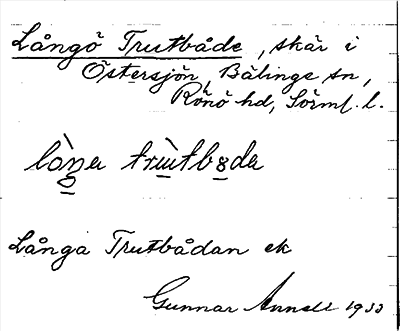 Långö Trutbåde, skär i
Östersjön, Bälinge sn,
Rönö hd, Sörml. l.
Långa Trutbådan ek
Gunnar Annell 1933